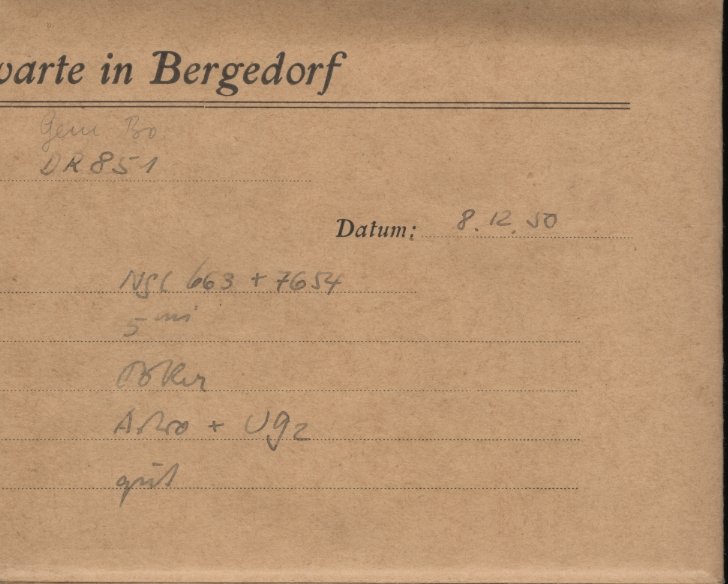 warte in Bergedorf
Gem Bo
DR 851
Datum: 8. 12. 50
NGC 663 + 7654
5 mi
Astro + UG2
gut